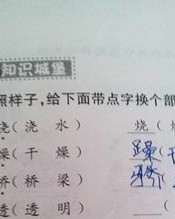 知识城堡
照样子,给下面带点字换个部
浇(浇 水) 烧(
燥(干 燥) 躁(
桥(桥 梁) 骄(
透(透 明)